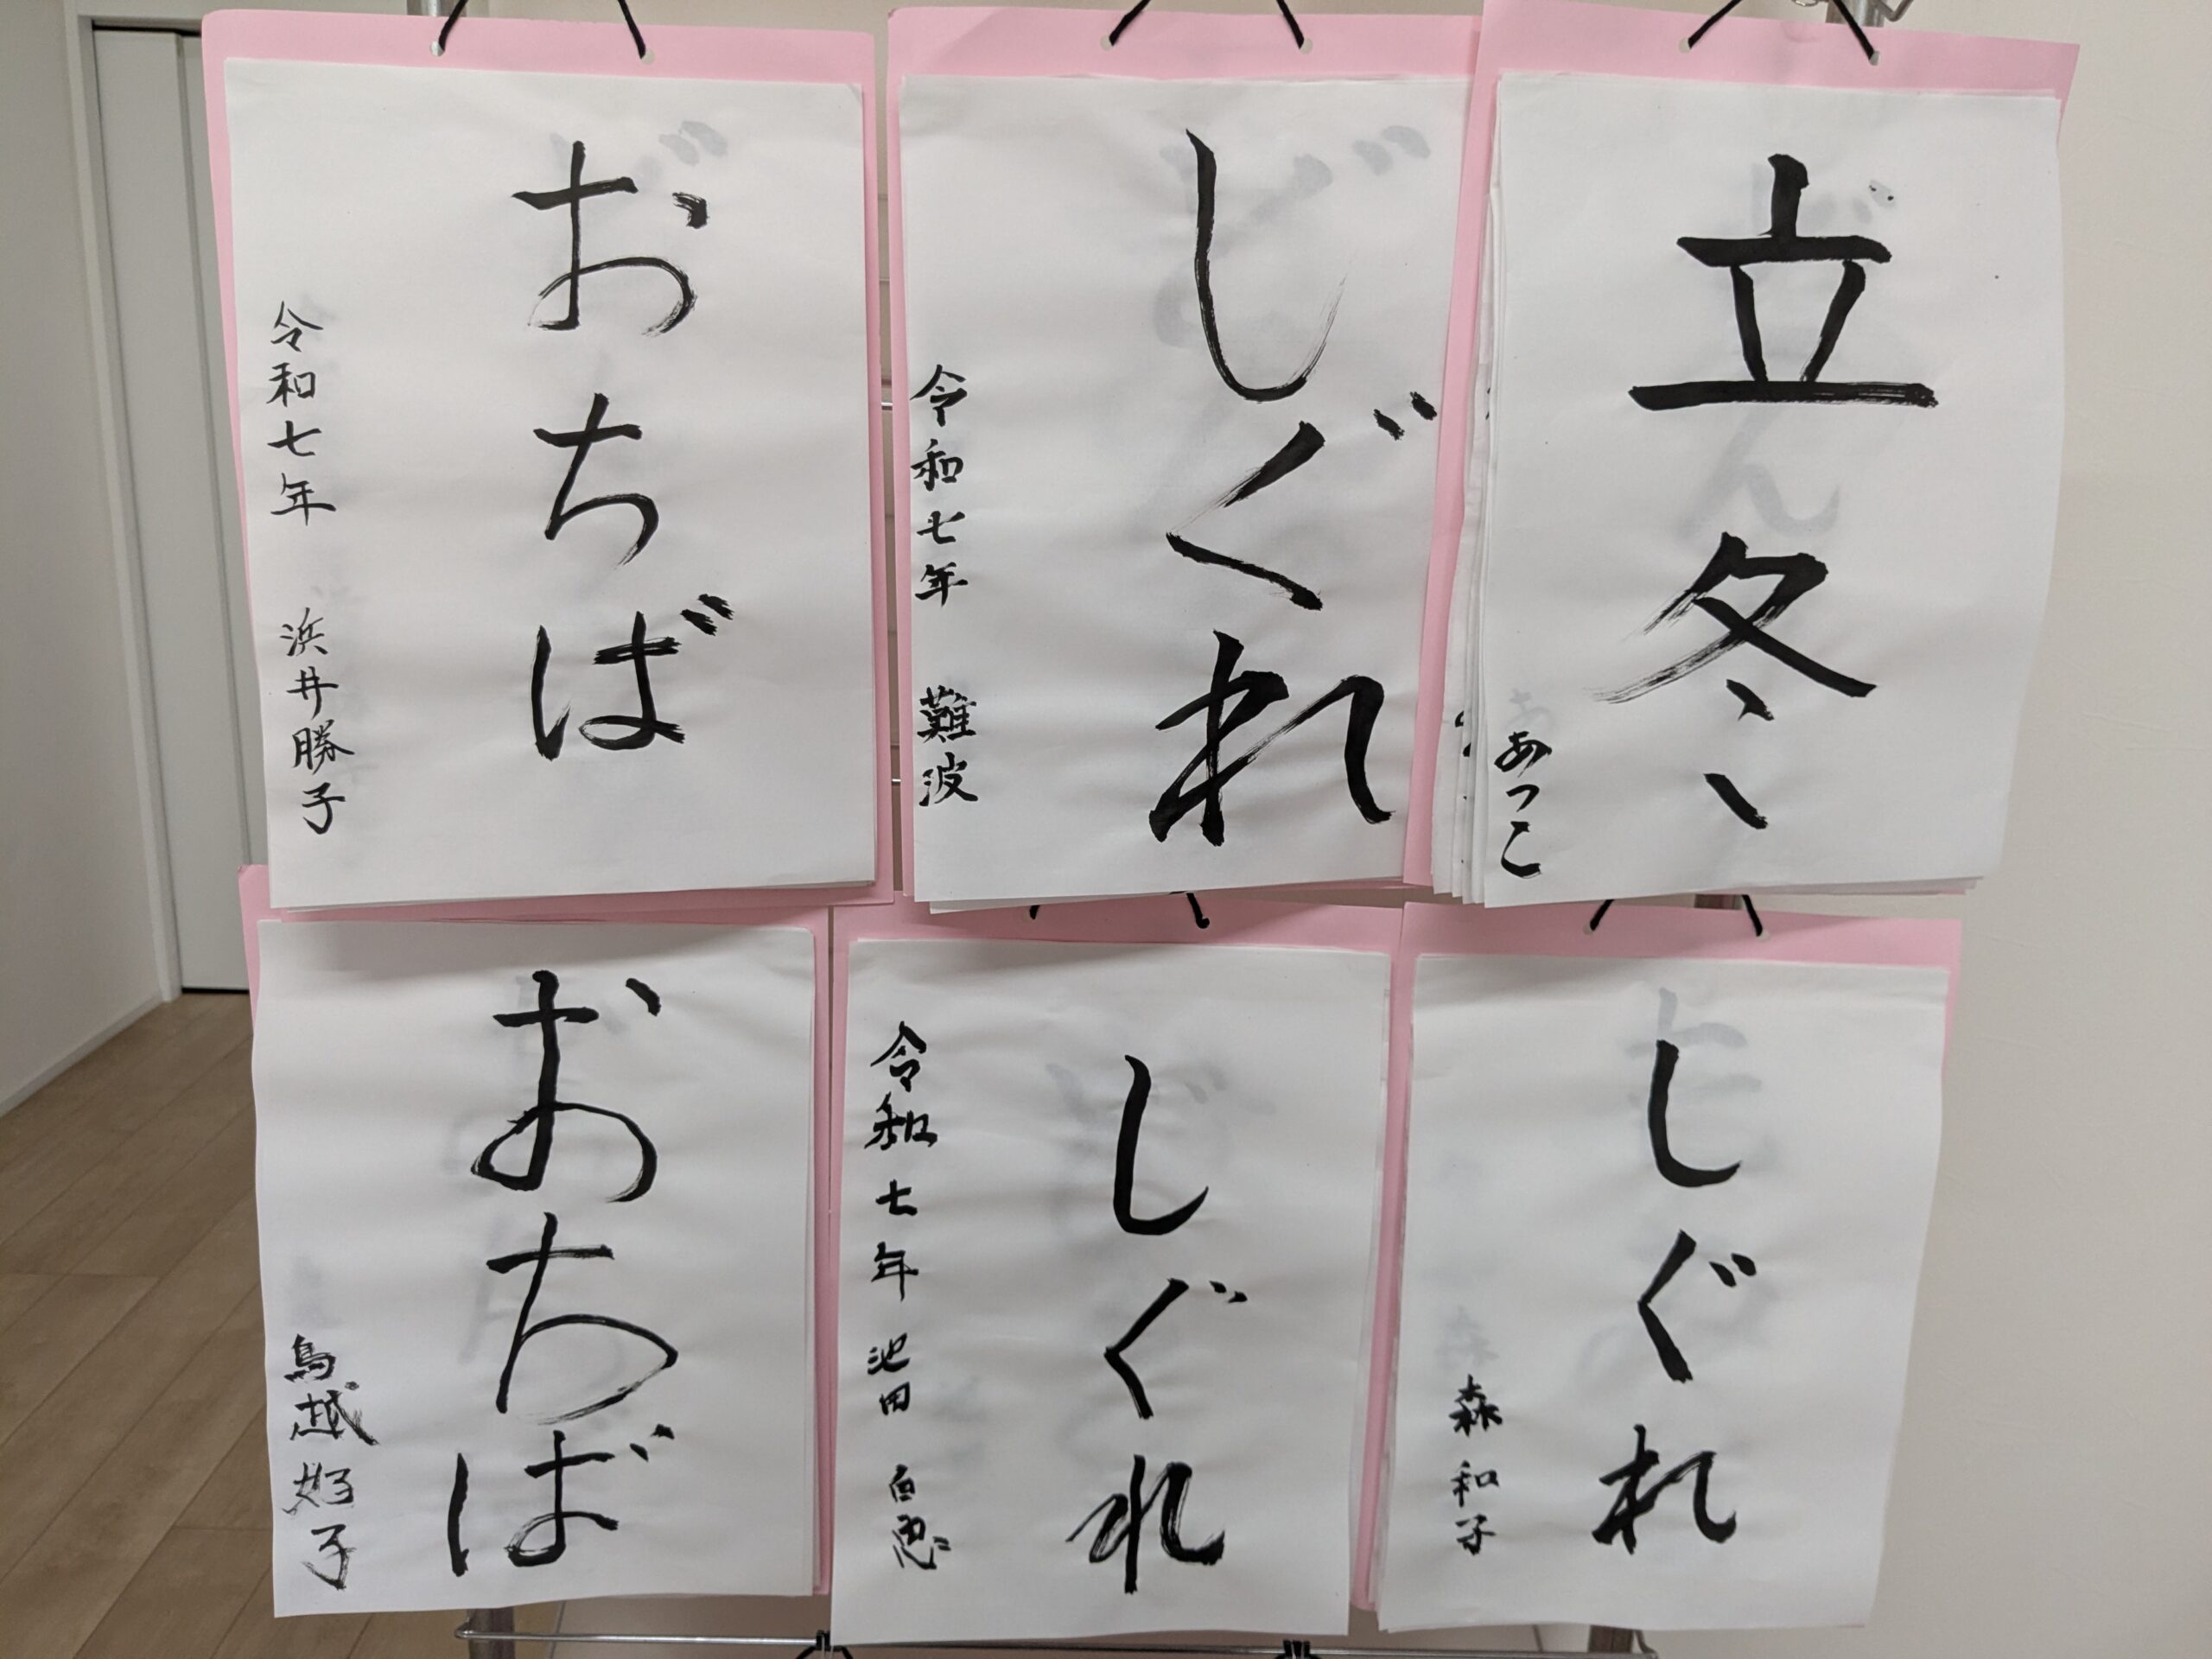 おちば
令和七年 浜井勝子
しぐれ
令和七年 難波
立冬
あっこ
おちば
鳥越好子
しぐれ
令和七年 池田
しぐれ
森和子